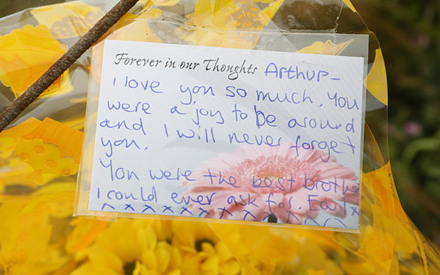 Forever in our Thoughts Arthur-
I love you so much. You
were a joy to be around
and I will never forget
you.
You were the best brother
I could ever ask for.
xxxxxxxxxxxx